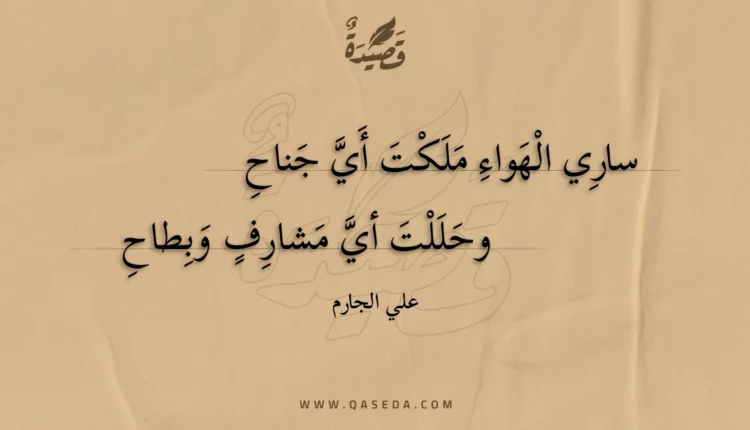 قَصِيدَةٌ
سارِي الْهَواءِ مَلَكْتَ أَيَّ جَناحِ
وحَلَلْتَ أيَّ مَشارِفٍ وَبِطاحِ
علي الجارم
WWW.QASEDA.COM